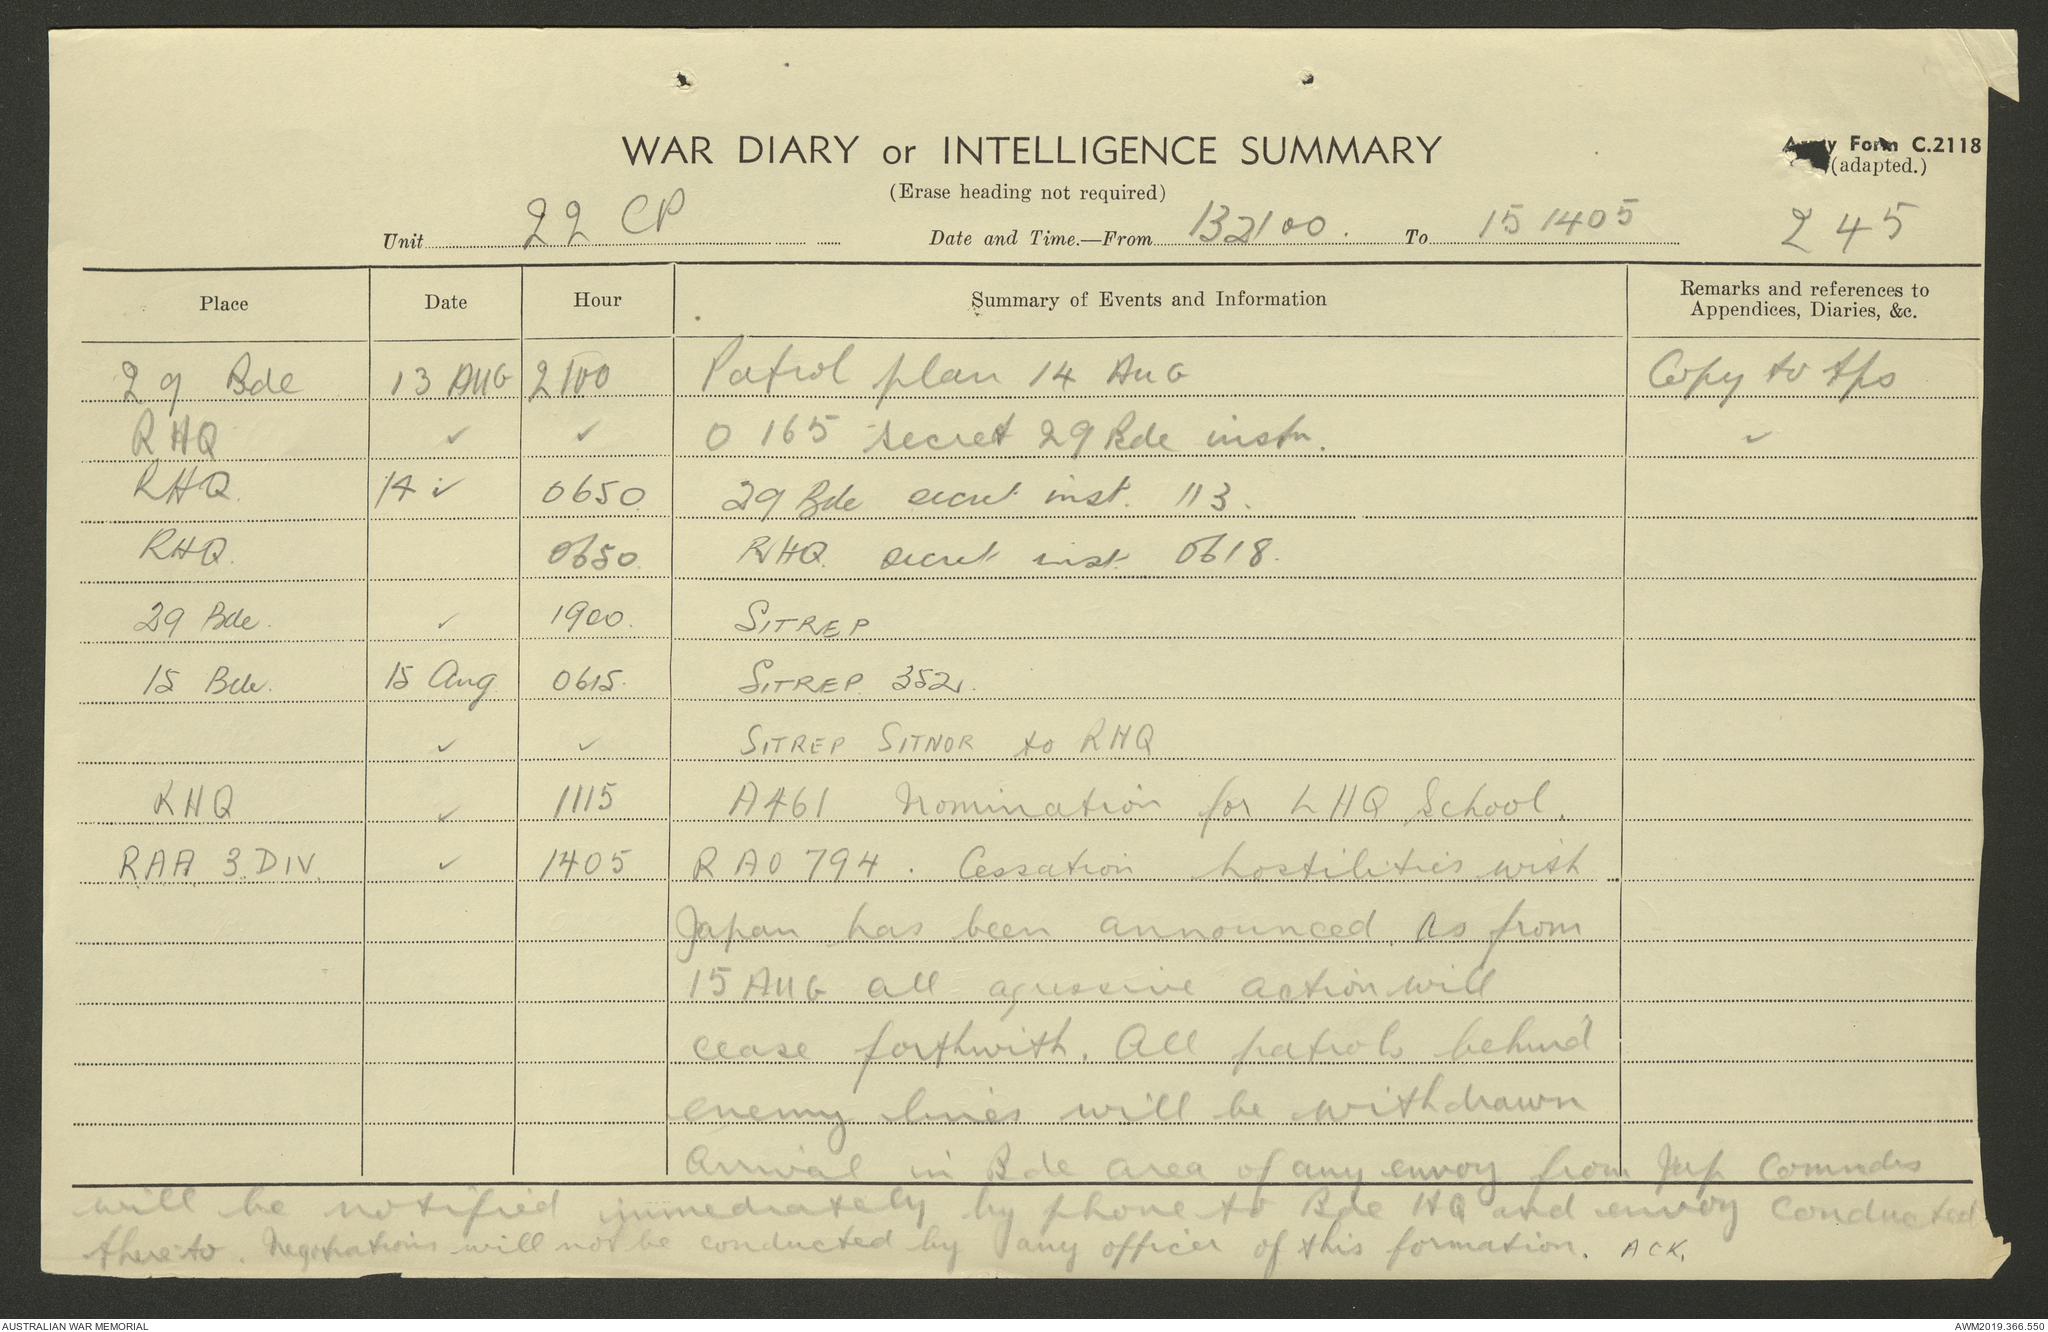 WAR DIARY or INTELLIGENCE SUMMARY
Army Form C.2118
(adapted.)
(Erase heading not required)
Unit 22 CP Date and Time.—From 132100. To 151405 245
Place Date Hour Summary of Events and Information Remarks and references to
Appendices, Diaries, &c.
29 Bde 13 AUG 2100 Patrol plan 14 AUG Copy to tps
RHQ ✓ ✓ O 165 secret 29 Bde instn. ✓
RHQ. 14 ✓ 0650 29 Bde secret inst. 113.
RHQ. 0650 RHQ secret inst 0618.
29 Bde. ✓ 1900. SITREP
15 Bde. 15 Aug 0615. SITREP 352.
✓ ✓ SITREP SITNOR to RHQ
RHQ ✓ 1115 A461 Nomination for LHQ School.
RAA 3 DIV. ✓ 1405 RAO 794. Cessation hostilities with
Japan has been announced. As from
15 AUG all agressive action will
cease forthwith. All patrols behind
enemy lines will be withdrawn
Arrival in Bde area of any envoy from Jap Comnds
will be notified immediately by phone to Bde HQ and envoy conducted
thereto. Negotiations will not be conducted by any officer of this formation. ACK.
AUSTRALIAN WAR MEMORIAL
AWM2019.366.550